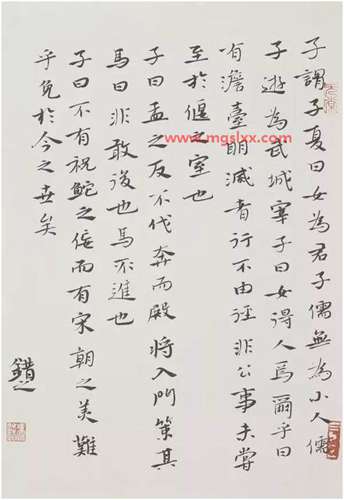 子謂子夏曰女為君子儒無為小人儒
子遊為武城宰子曰女得人焉爾乎曰
有澹臺明滅者行不由徑非公事未嘗
至於偃之室也
子曰孟之反不伐奔而殿將入門策其
馬曰非敢後也馬不進也
子曰不有祝鮀之佞而有宋朝之美難
乎免於今之世矣
www.mgslxx.com